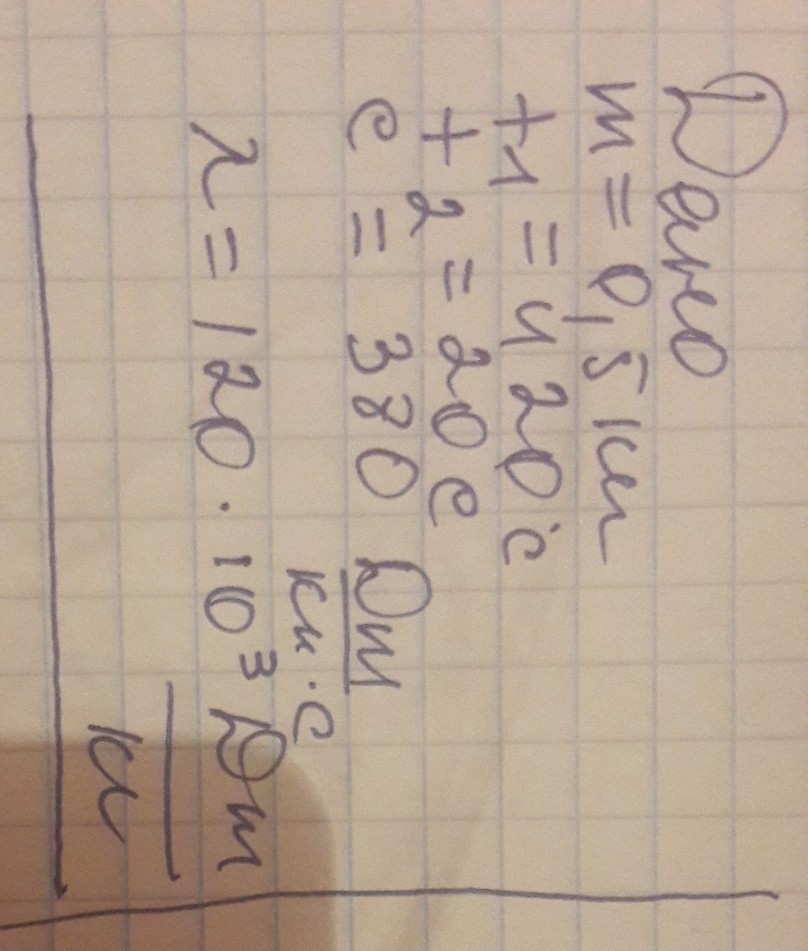 Дано
m = 0,5 кг
t1 = 420°c
t2 = 20c
c = 380 Дж
кг·c
λ = 120·10³ Дж
кг